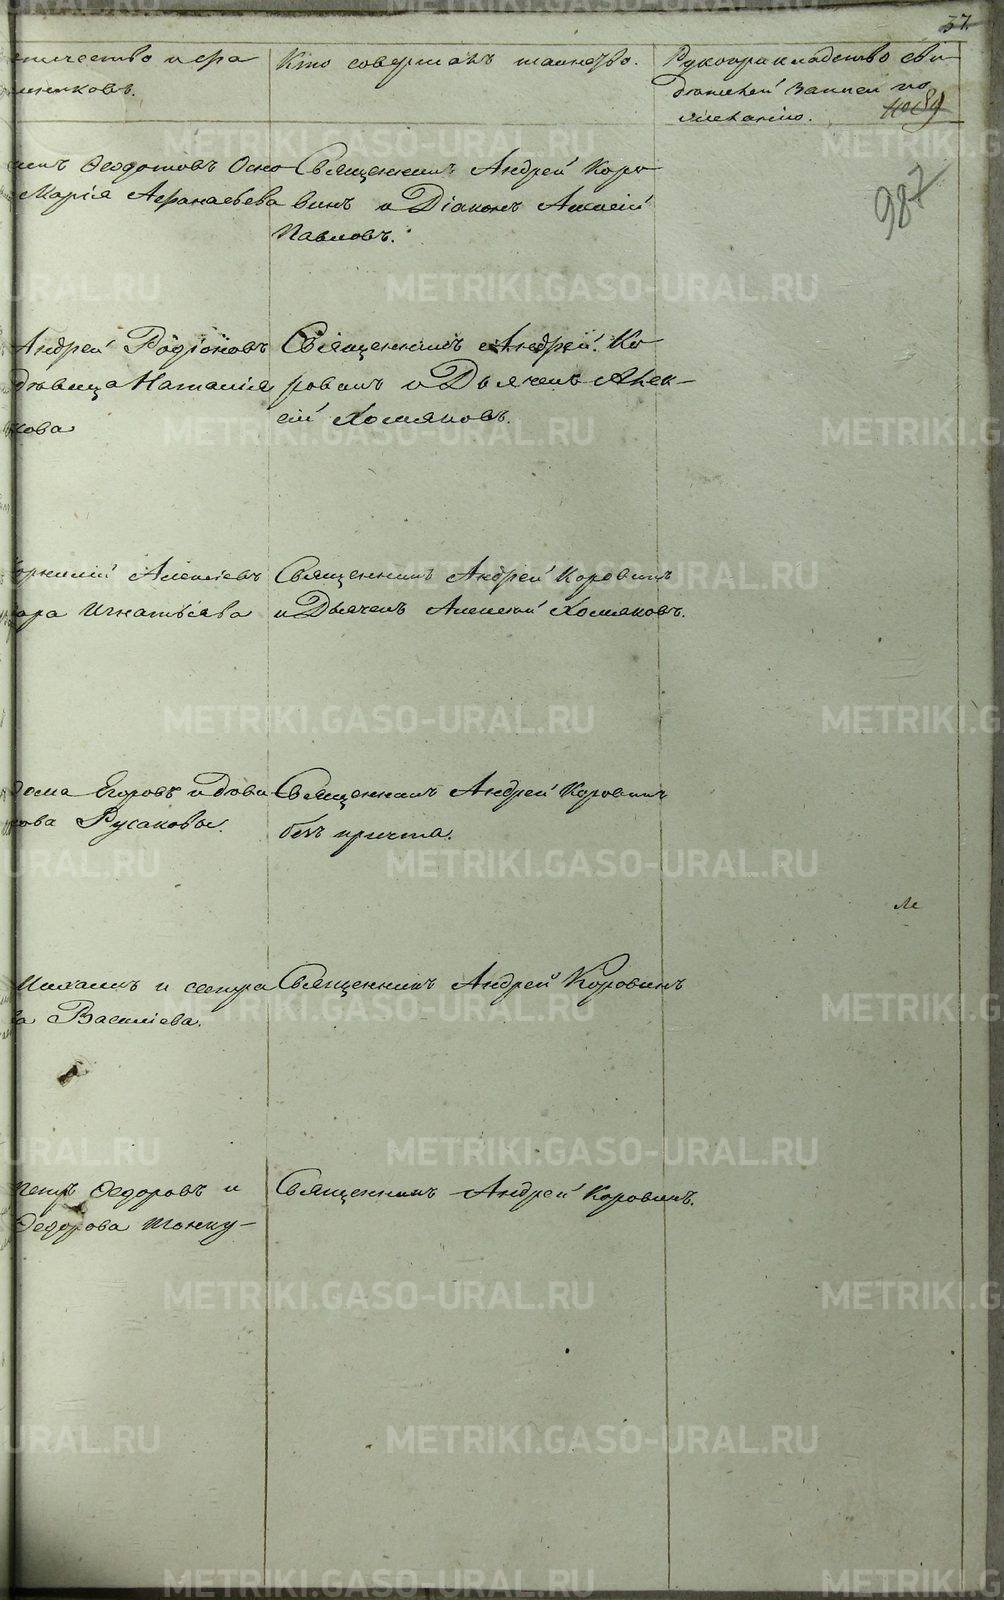 37.
отчество и фа
Кто совершалъ таинство.
Рукоприкладство сви-
дѣтелей записи по
желанію.
987
Ѳеодотовъ Осно
Марія Аѳанасьева
Священникъ Андрей Коро
винъ и Діаконъ Алексій
Павловъ.
Андрей Родіоновъ
дѣвица Наталія
кова
Священникъ Андрей Ко
ровинъ и Дьячекъ Алек-
сій Холмяковъ.
Алексіевъ
Игнатьева
Священникъ Андрей Коровинъ
и Дьячекъ Алексій Холмяковъ.
Егоровъ и дѣви
рова Русаковы.
Священникъ Андрей Коровинъ
безъ причта.
Михаилъ и сестра
ва Василіева.
Священникъ Андрей Коровинъ
Петръ Ѳедоровъ и
Ѳедорова
Священникъ Андрей Коровинъ.
METRIKI.GASO-URAL.RU